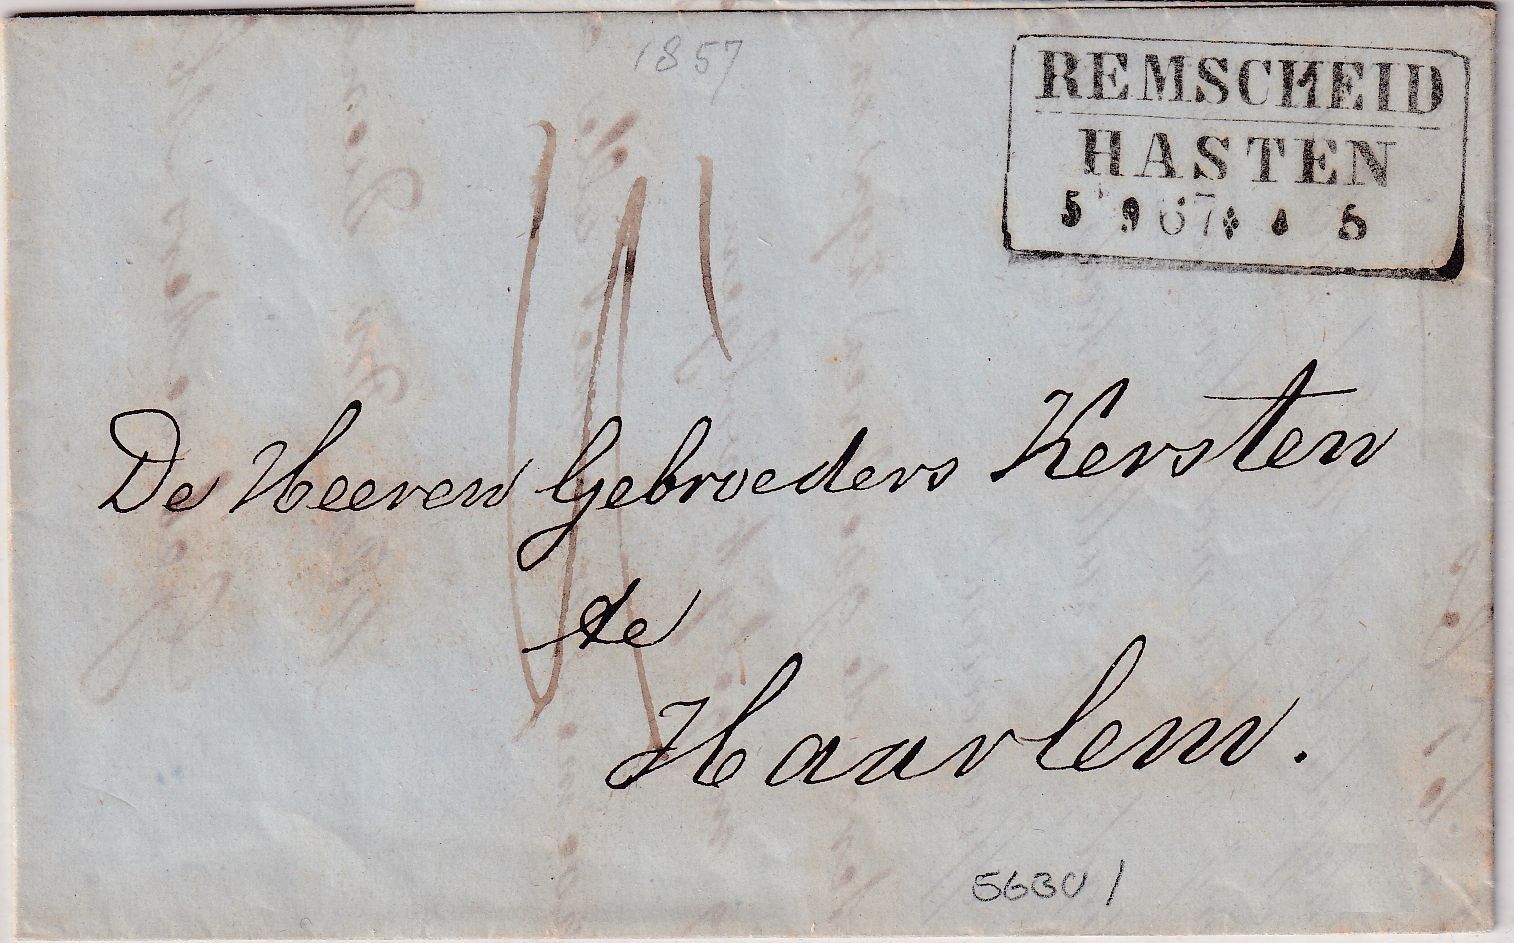 1857
REMSCHEID
HASTEN
5 9
De Heeren Gebroeders Kersten
te
Haarlem.